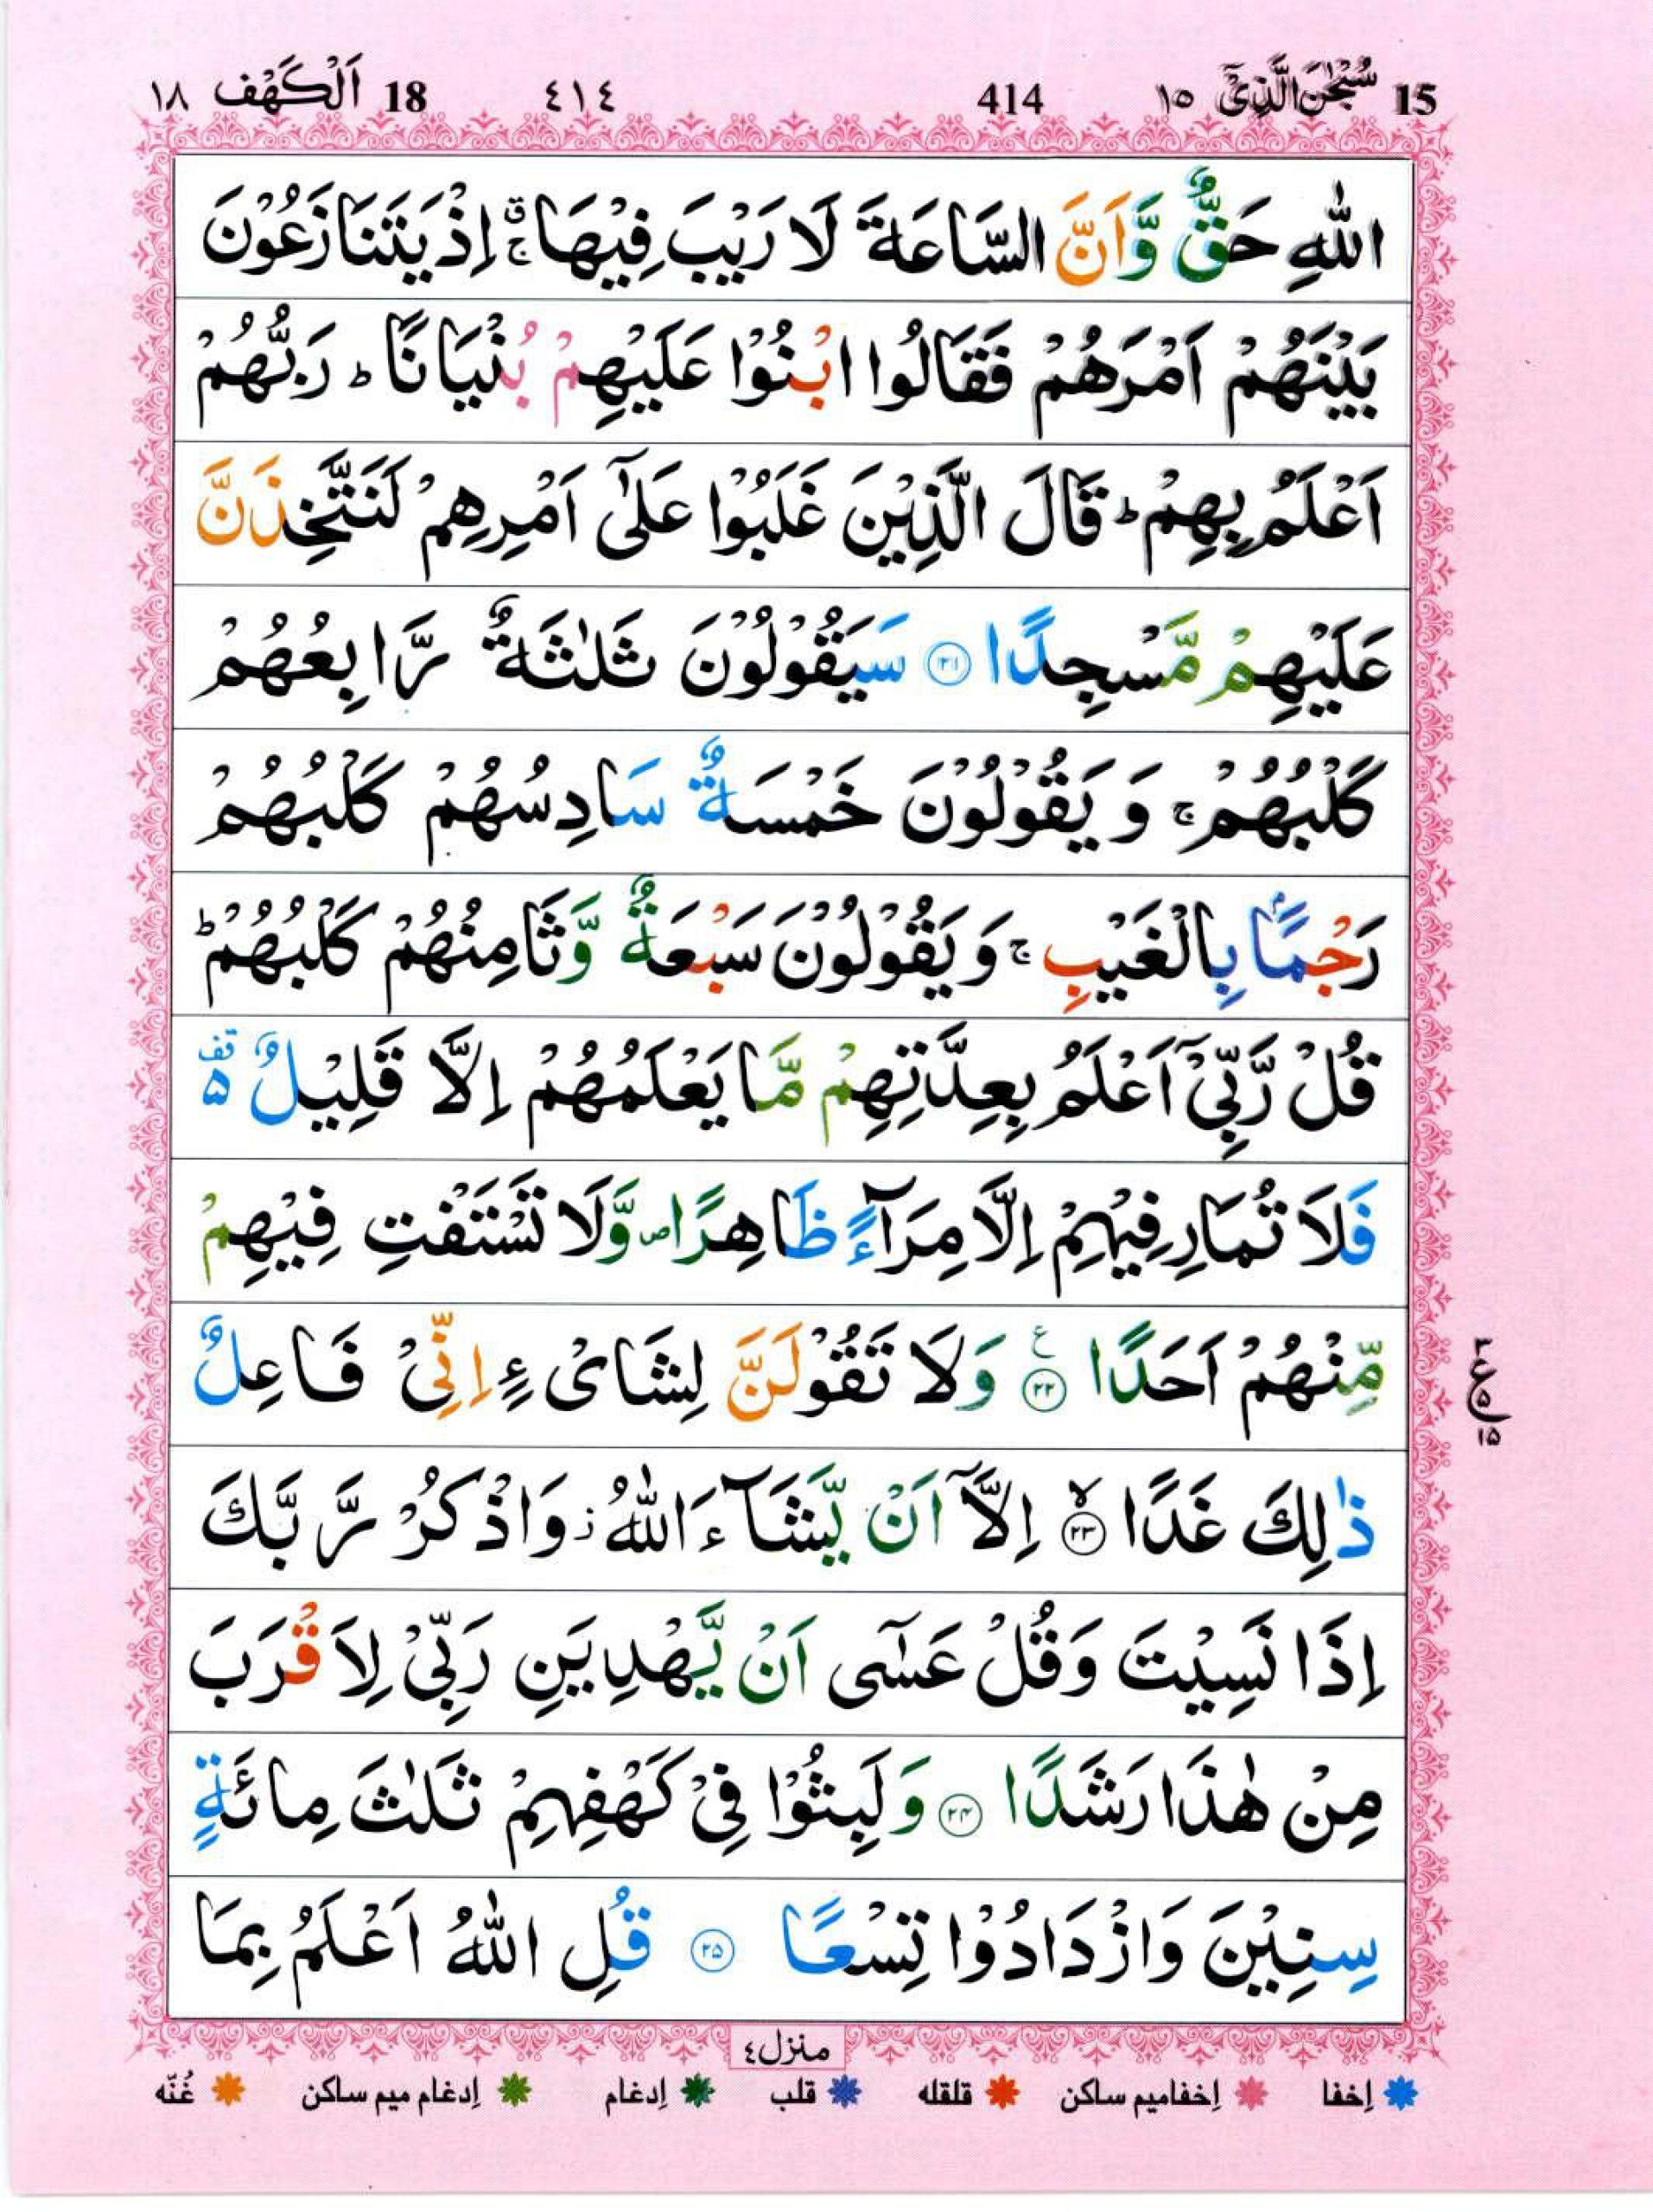 15 سُبْحٰنَ الَّذِیْۤ ١٥ 414 ٤١٤ 18 اَلْكَهْف ١٨
اللّٰهِ حَقٌّ وَّاَنَّ السَّاعَةَ لَا رَیْبَ فِیْهَا ۚۗ اِذْ یَتَنَازَعُوْنَ
بَیْنَهُمْ اَمْرَهُمْ فَقَالُوا ابْنُوْا عَلَیْهِمْ بُنْیَانًا ؕ رَبُّهُمْ
اَعْلَمُ بِهِمْ ؕ قَالَ الَّذِیْنَ غَلَبُوْا عَلٰۤی اَمْرِهِمْ لَنَتَّخِذَنَّ
عَلَیْهِمْ مَّسْجِدًا ۲۱ سَیَقُوْلُوْنَ ثَلٰثَةٌ رَّابِعُهُمْ
كَلْبُهُمْ ۚ وَیَقُوْلُوْنَ خَمْسَةٌ سَادِسُهُمْ كَلْبُهُمْ
رَجْمًۢا بِالْغَیْبِ ۚ وَیَقُوْلُوْنَ سَبْعَةٌ وَّثَامِنُهُمْ كَلْبُهُمْ ؕ
قُلْ رَّبِّیْۤ اَعْلَمُ بِعِدَّتِهِمْ مَّا یَعْلَمُهُمْ اِلَّا قَلِیْلٌ ۵ قف
فَلَا تُمَارِ فِیْهِمْ اِلَّا مِرَآءً ظَاهِرًا ۪ وَّلَا تَسْتَفْتِ فِیْهِمْ
مِّنْهُمْ اَحَدًا ۲۲ ع وَلَا تَقُوْلَنَّ لِشَایْءٍ اِنِّیْ فَاعِلٌ
ذٰلِكَ غَدًا ۲۳ ۙ اِلَّاۤ اَنْ یَّشَآءَ اللّٰهُ ؗ وَاذْكُرْ رَّبَّكَ
اِذَا نَسِیْتَ وَقُلْ عَسٰۤی اَنْ یَّهْدِیَنِ رَبِّیْ لِاَقْرَبَ
مِنْ هٰذَا رَشَدًا ۲۴ وَلَبِثُوْا فِیْ كَهْفِهِمْ ثَلٰثَ مِائَةٍ
سِنِیْنَ وَازْدَادُوْا تِسْعًا ۲۵ قُلِ اللّٰهُ اَعْلَمُ بِمَا
منزل٤
إخفا إخفامیم ساكن قلقله قلب إدغام إدغام میم ساكن غُنّه